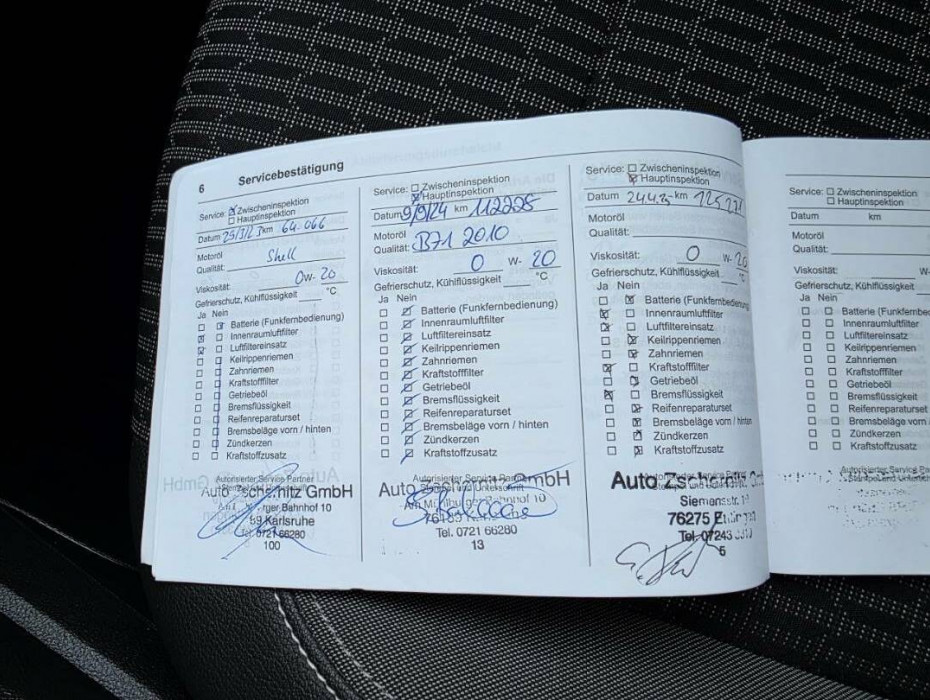 6 Servicebestätigung
Service: Zwischeninspektion
Hauptinspektion
Datum 25/3/23 km 64.066
Motoröl
Qualität: Shell
Viskosität: 0W-20
Gefrierschutz, Kühlflüssigkeit °C
Ja Nein
Batterie (Funkfernbedienung)
Innenraumluftfilter
Luftfiltereinsatz
Keilrippenriemen
Zahnriemen
Kraftstofffilter
Getriebeöl
Bremsflüssigkeit
Reifenreparaturset
Bremsbeläge vorn / hinten
Zündkerzen
Kraftstoffzusatz
Autorisierter Service Partner
Auto Zschernitz GmbH
Bahnhof 10
Karlsruhe
Tel. 0721 66280
100
Service: Zwischeninspektion
Hauptinspektion
Datum 9/9/24 km 112225
Motoröl
Qualität: B71 2010
Viskosität: 0 W- 20
Gefrierschutz, Kühlflüssigkeit °C
Ja Nein
Batterie (Funkfernbedienung)
Innenraumluftfilter
Luftfiltereinsatz
Keilrippenriemen
Zahnriemen
Kraftstofffilter
Getriebeöl
Bremsflüssigkeit
Reifenreparaturset
Bremsbeläge vorn / hinten
Zündkerzen
Kraftstoffzusatz
Autorisierter Service Partner
Auto GmbH
Bahnhof 10
Tel. 0721 66280
13
Service: Zwischeninspektion
Hauptinspektion
Datum 24.4.25 km 125.271
Motoröl
Qualität:
Viskosität: 0 W- 20
Gefrierschutz, Kühlflüssigkeit °C
Ja Nein
Batterie (Funkfernbedienung
Innenraumluftfilter
Luftfiltereinsatz
Keilrippenriemen
Zahnriemen
Kraftstofffilter
Getriebeöl
Bremsflüssigkeit
Reifenreparaturset
Bremsbeläge vorn / hinten
Zündkerzen
Kraftstoffzusatz
Auto Zschernitz
Siemensstr.
76275
Tel. 07243
5
Service: Zwischeninspektion
Hauptinspektion
Datum km
Motoröl
Qualität:
Viskosität: W-
Gefrierschutz, Kühlflüssigkeit
Ja Nein
Batterie (Funkfernbedien
Innenraumluftfilter
Luftfiltereinsatz
Keilrippenriemen
Zahnriemen
Kraftstofffilter
Getriebeöl
Bremsflüssigkeit
Reifenreparaturset
Bremsbeläge vorn
Zündkerzen
Kraftstoffzusatz
Autorisierter Service Partner